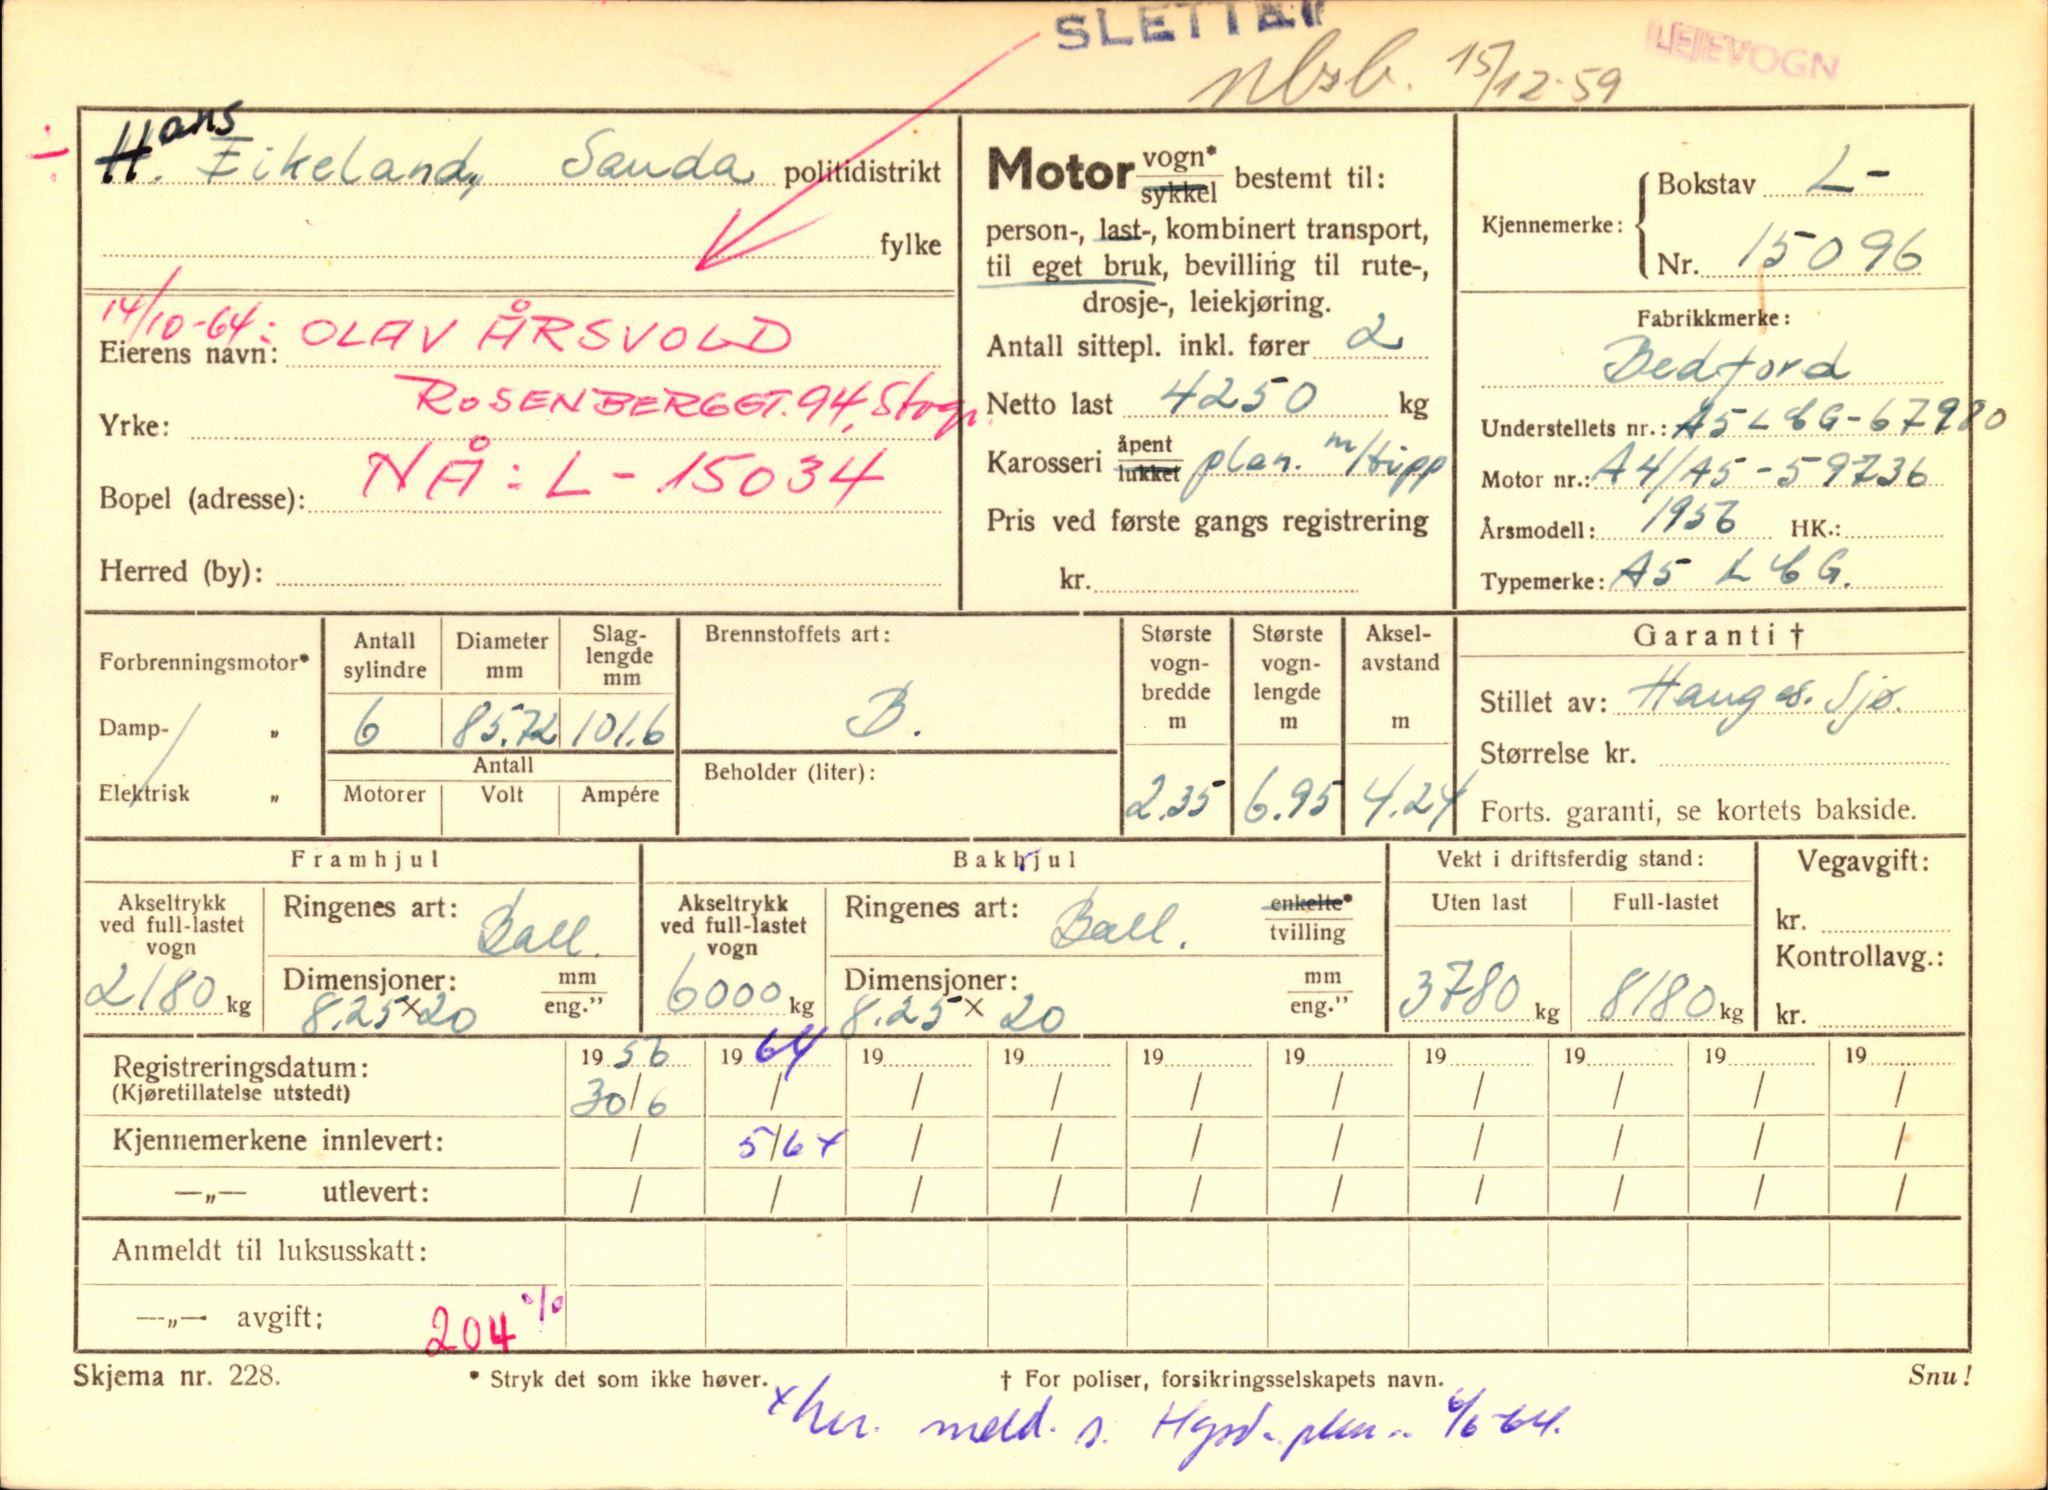 SLETTET
15/12-59
LEIEVOGN
Hans Eikeland, Sauda politidistrikt
fylke
14/10-64: OLAV ÅRSVOLD
Eierens navn:
ROSENBERGGT. 94, Stvgr.
Yrke:
NÅ: L-15034
Bopel (adresse):
Herred (by):
Motor vogn* sykkel bestemt til:
person-, last-, kombinert transport,
til eget bruk, bevilling til rute-,
drosje-, leiekjøring.
Antall sittepl. inkl. fører 2
Netto last 4250 kg
Karosseri åpent lukket plan. m/tipp
Pris ved første gangs registrering
kr.
Kjennemerke: Bokstav L-
Nr. 15096
Fabrikkmerke:
Bedford
Understellets nr.: A5LCG-67980
Motor nr.: A4/A5-59736
Årsmodell: 1956 HK.:
Typemerke: A5 LCG.
Forbrenningsmotor*
Damp- „
Elektrisk „
Antall sylindre
6
Diameter mm
85.72
Slaglengde mm
101.6
Antall
Motorer Volt Ampére
Brennstoffets art:
B.
Beholder (liter):
Største vognbredde m
2.35
Største vognlengde m
6.95
Akselavstand m
4.24
Garanti †
Stillet av: Hauges. Sjø.
Størrelse kr.
Forts. garanti, se kortets bakside.
Framhjul
Akseltrykk ved full-lastet vogn
2180 kg
Ringenes art: Ball.
Dimensjoner: mm eng."
8.25 x 20
Bakhjul
Akseltrykk ved full-lastet vogn
6000 kg
Ringenes art: Ball. enkelte* tvilling
Dimensjoner: mm eng."
8.25 x 20
Vekt i driftsferdig stand:
Uten last Full-lastet
3780 kg 8180 kg
Vegavgift:
kr.
Kontrollavg.:
kr.
Registreringsdatum: 1956 1964 19 19 19 19 19 19 19 19
(Kjøretillatelse utstedt) 30/6 / / / / / / / / /
Kjennemerkene innlevert: / 5/6 x / / / / / / / /
—„— utlevert: / / / / / / / / / /
Anmeldt til luksusskatt:
—„— avgift: 204 %
Skjema nr. 228. * Stryk det som ikke høver. † For poliser, forsikringsselskapets navn. Snu!
meld. 6/6-64.